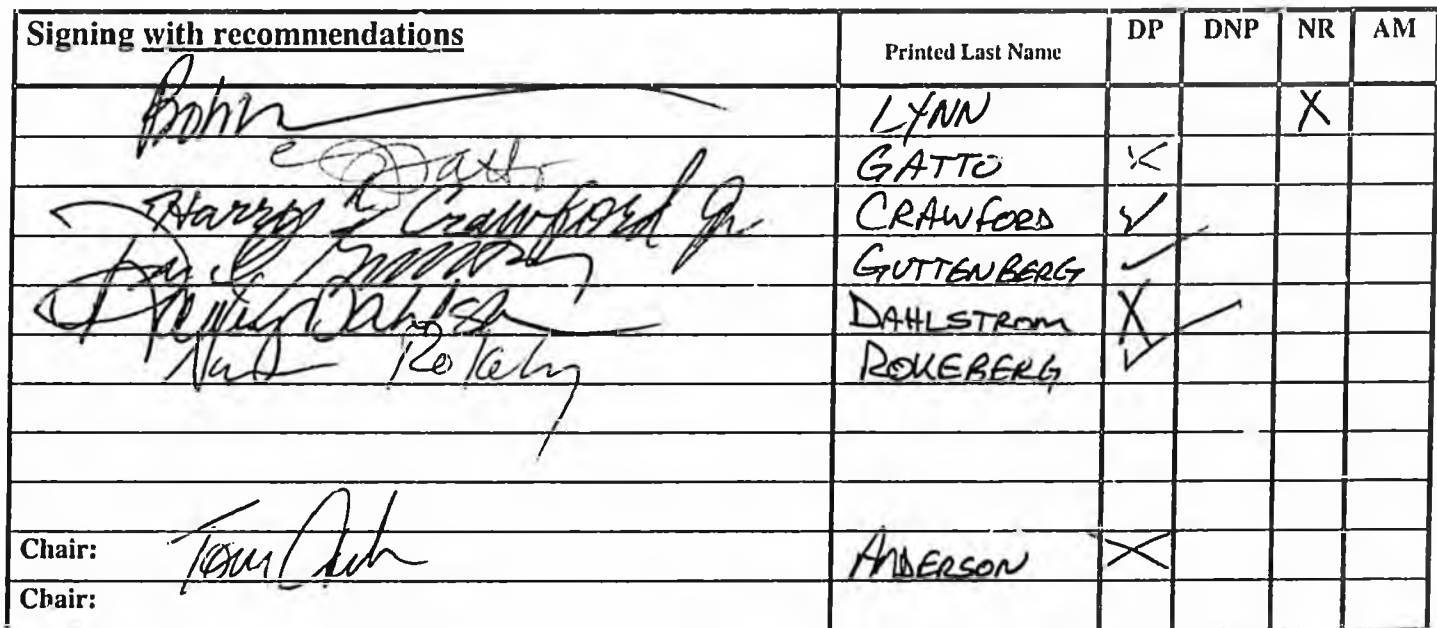 Signing with recommendations Printed Last Name DP DNP NR AM
LYNN X
Gatto GATTO X
Harry Crawford Jr. CRAWFORD ✓
GUTTENBERG ✓
DAHLSTROM X
ROKEBERG ✓
Chair: Tom ANDERSON X
Chair: